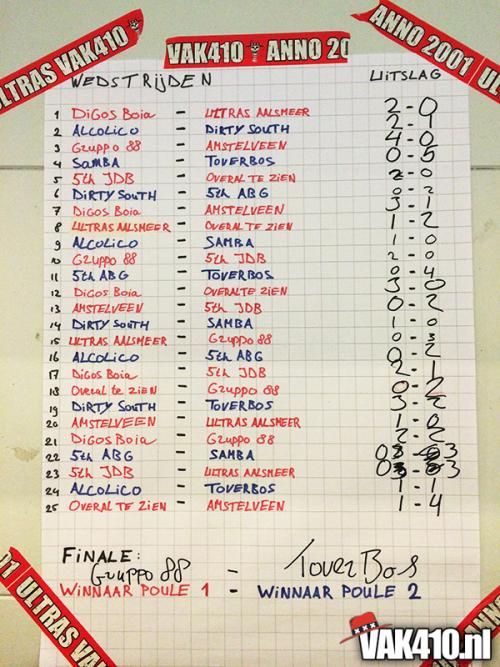 ULTRAS VAK410
VAK410 ANNO 20
ANNO 2001 UL
WEDSTRIJDEN UITSLAG
1 DiGos Boia - ULTRAS AALSMEER 2-0
2 ALCOLICO - DIRTY SOUTH 2-1
3 Gruppo 88 - AMSTELVEEN 4-0
4 SAMBA - TOVERBOS 0-5
5 5th JDB - OVERAL TE ZIEN 2-0
6 DIRTY SOUTH - 5th ABG 0-2
7 DiGos Boia - AMSTELVEEN 3-1
8 ULTRAS AALSMEER - OVERAL TE ZIEN 1-2
9 ALCOLICO - SAMBA 1-0
10 Gruppo 88 - 5th JDB 2-0
11 5th ABG - TOVERBOS 0-4
12 DiGos Boia - OVERAL TE ZIEN 3-0
13 AMSTELVEEN - 5th JDB 0-2
14 DIRTY SOUTH - SAMBA 1-0
15 ULTRAS AALSMEER - Gruppo 88 0-3
16 ALCOLICO - 5th ABG 0-2
17 DiGos Boia - 5th JDB 2-1
18 OVERAL TE ZIEN - Gruppo 88 0-2
19 DIRTY SOUTH - TOVERBOS 3-2
20 AMSTELVEEN - ULTRAS AALSMEER 1-0
21 DiGos Boia - Gruppo 88 2-2
22 5th ABG - SAMBA 0-3
23 5th JDB - ULTRAS AALSMEER 0-3
24 ALCOLICO - TOVERBOS 1-1
25 OVERAL TE ZIEN - AMSTELVEEN 1-4
FINALE:
Gruppo 88 - Tover Bos
WINNAAR POULE 1 - WINNAAR POULE 2
01 ULTRAS VAK
ANNO
VAK410.nl